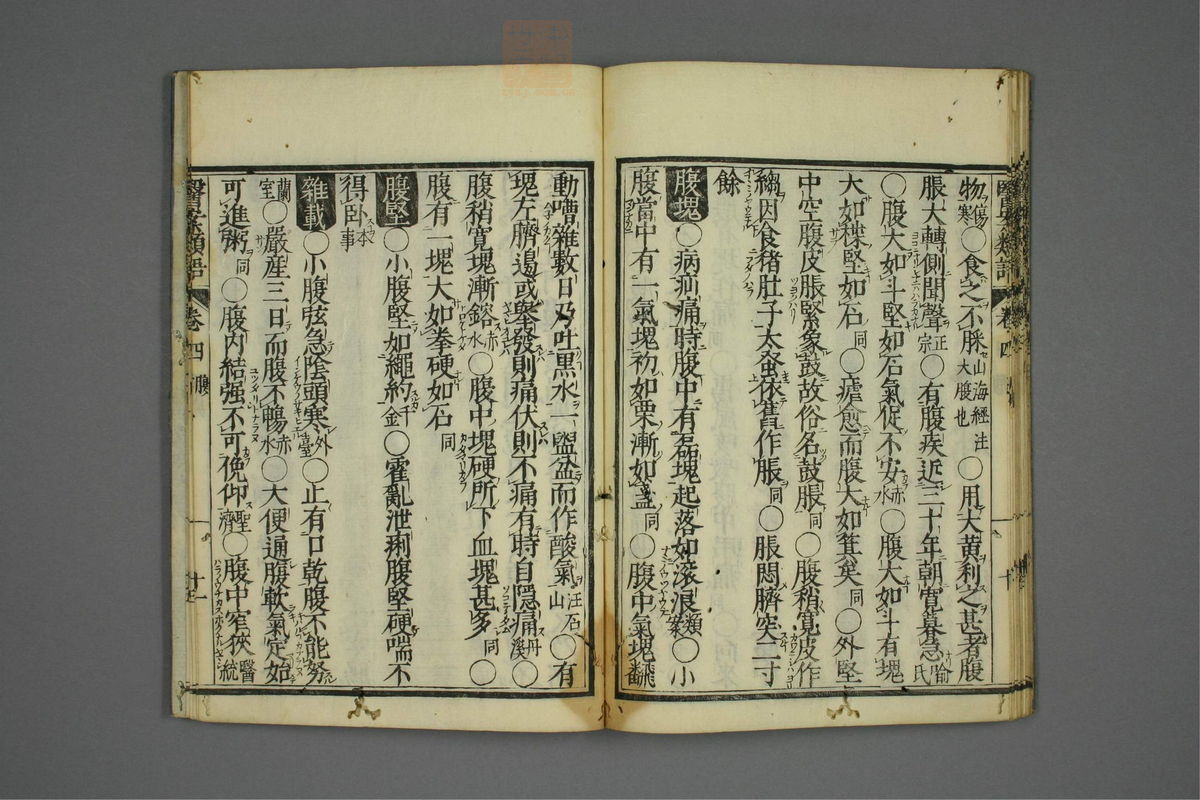 物傷寒○食之不䐐山海經注大腹也○用大黄利之甚者腹
脹大轉側聞聲正宗○有腹疾近三十年朝寛暮急喻氏
○腹大如斗堅如石氣促不安赤水○腹大如斗有塊
大如楪堅如石同○瘧愈而腹大如箕矣同○外堅
中空腹皮脹緊象鼓故俗名鼓脹同○腹稍寛皮作
縐因食猪肚子太蚤依舊作脹同○脹悶臍突二寸
餘
腹塊○病疝痛時腹中有磊塊起落如滚浪類案○小
腹當中有一氣塊初如栗漸如盞同○腹中氣塊飛翻
動嘈雜數日乃吐黒水一盥盆而作酸氣汪石山○有
塊左臍邉或舉發則痛伏則不痛有時自隱痛丹溪○
腹稍寛塊漸鎔赤水○腹中塊硬所下血塊甚多同○
腹有一塊大如拳硬如石同
腹堅○小腹堅如繩約千金○霍亂泄痢腹堅硬喘不
得卧本事
雜載○小腹弦急陰頭寒外臺○止有口乾腹不能努
蘭室○嚴産三日而腹不暢赤水○大便通腹軟氣定如
可進粥同○腹内結强不可俛仰聖濟○腹中窄狹醫統
醫案類語 卷四 腹 十一